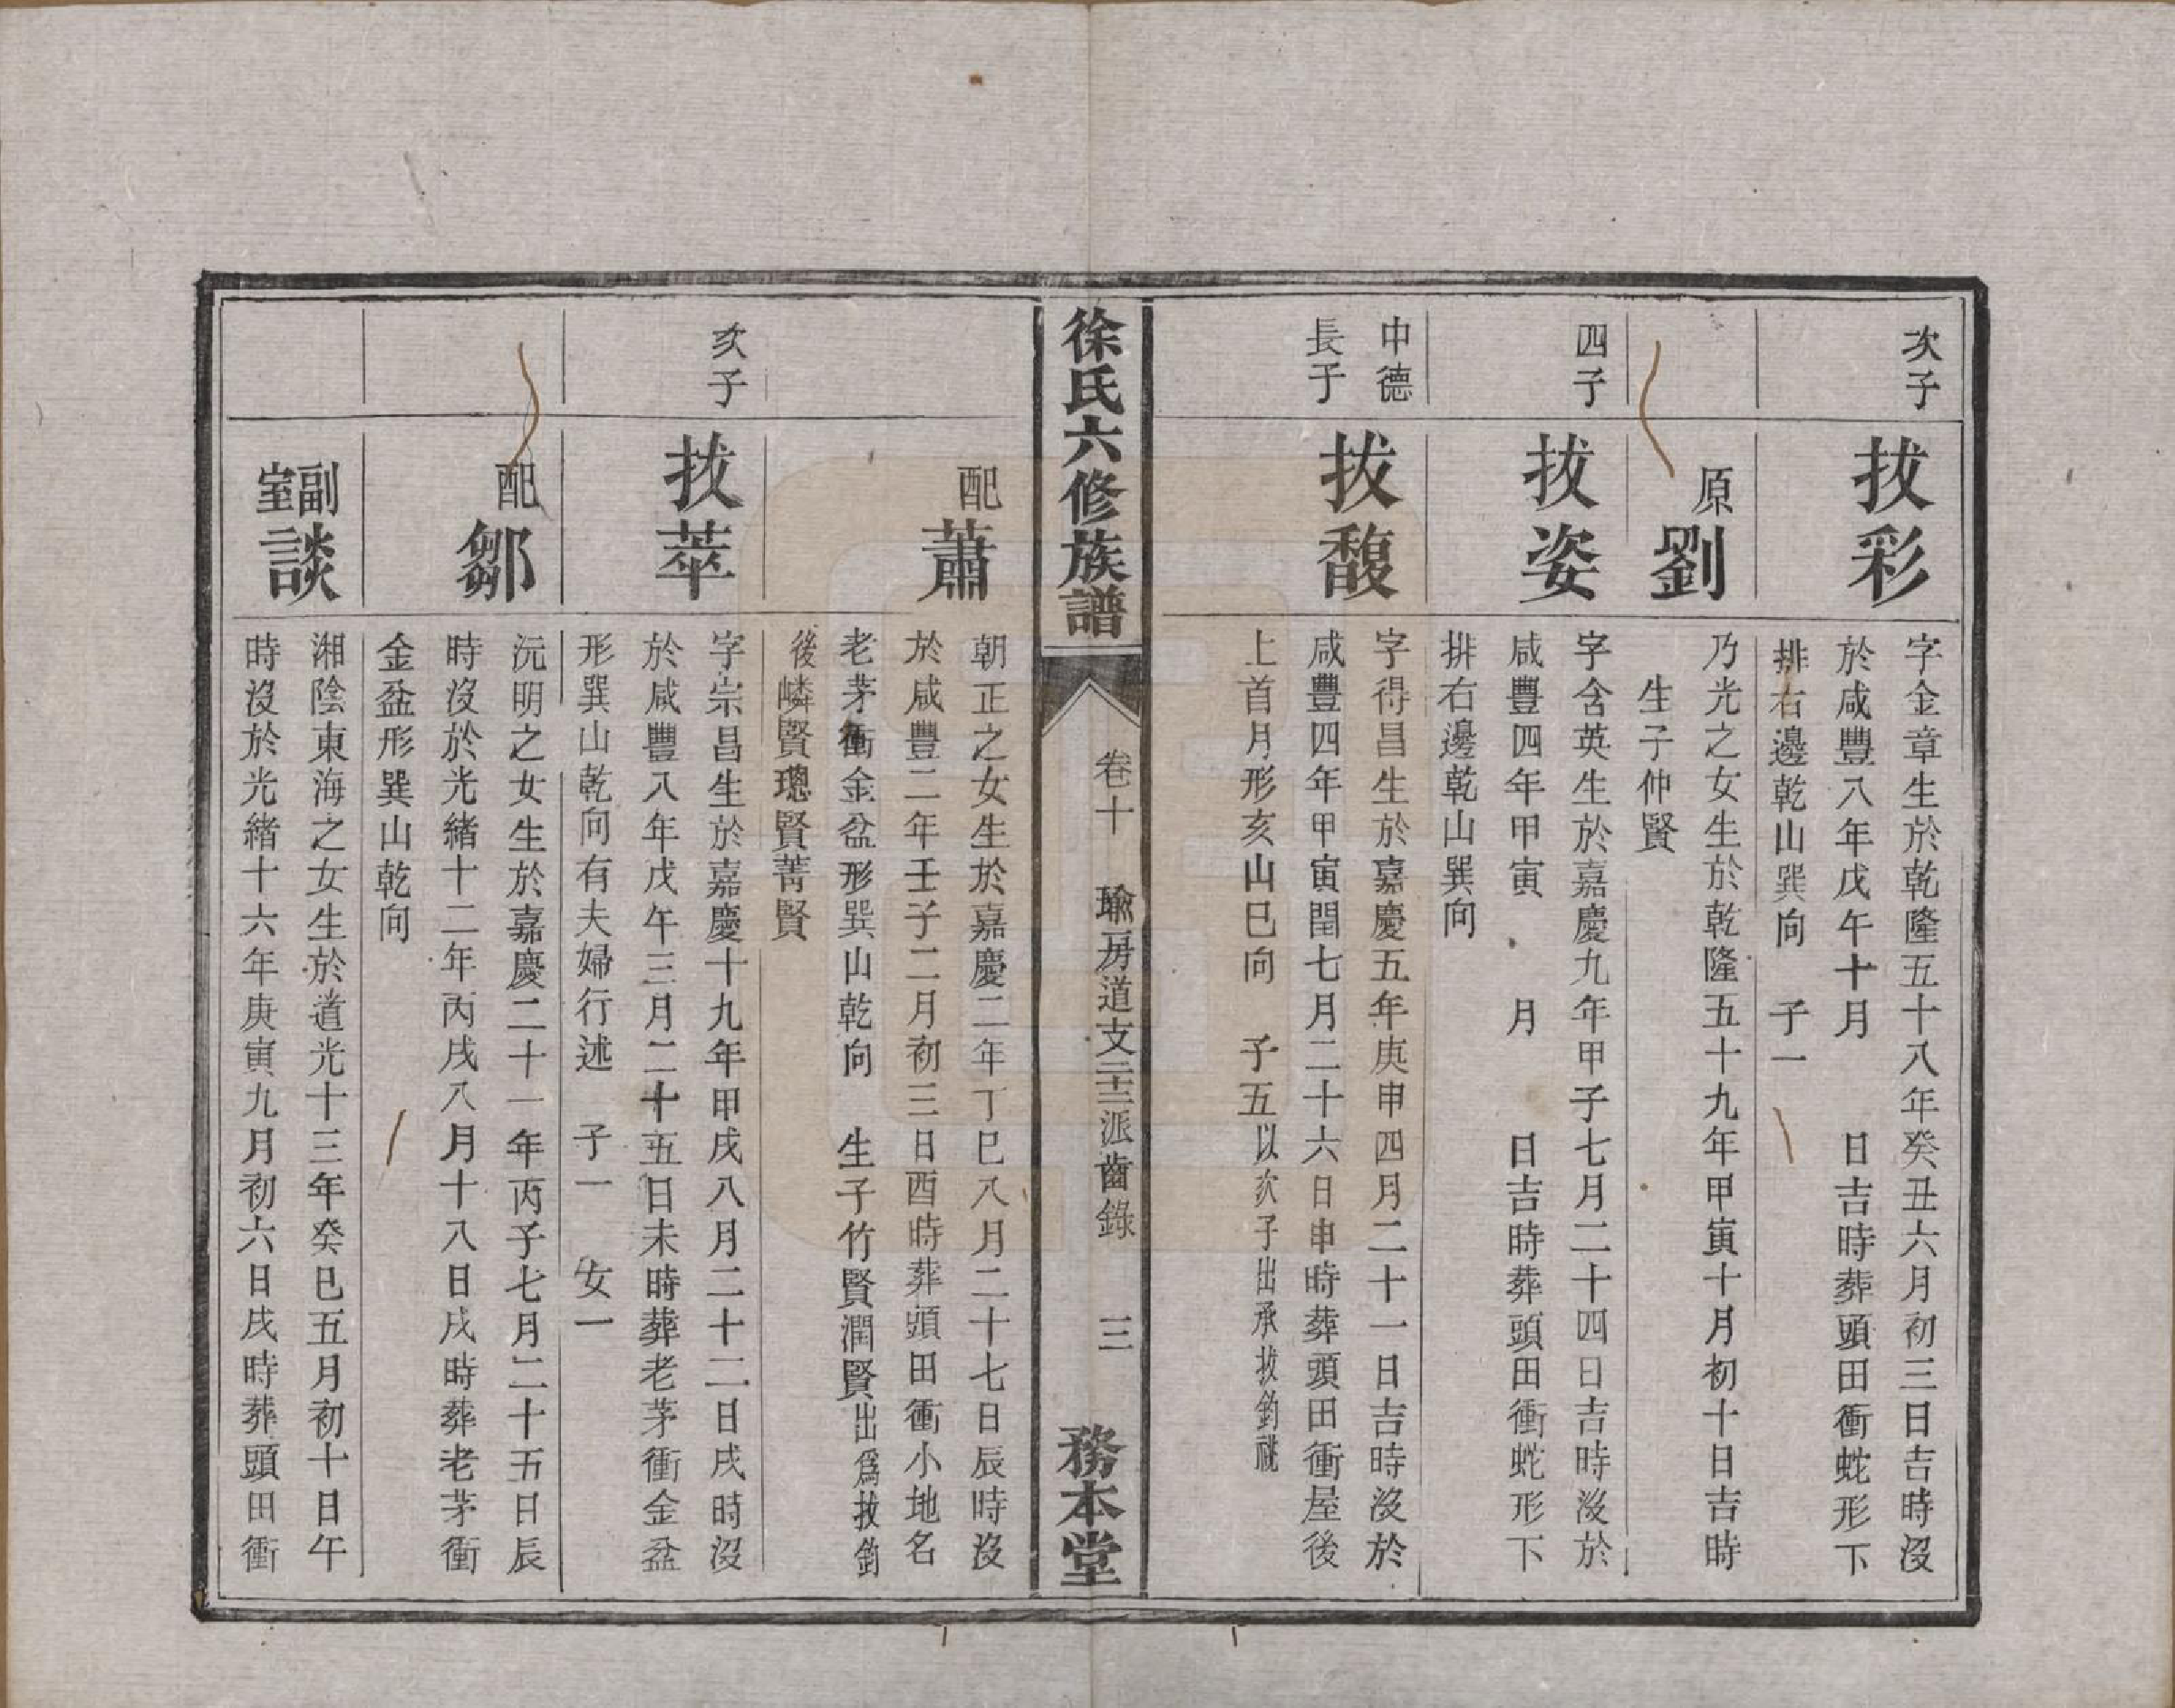 次子
拔彩
字金章生於乾隆五十八年癸丑六月初三日吉時沒
於咸豐八年戊午十月　　日吉時葬頭田衝蛇形下
排右邊乾山巽向　子一
原劉
乃光之女生於乾隆五十九年甲寅十月初十日吉時
生子仲賢
四子
拔姿
字含英生於嘉慶九年甲子七月二十四日吉時沒於
咸豐四年甲寅　　月　　日吉時葬頭田衝蛇形下
排右邊乾山巽向
中德
長子
拔馥
字得昌生於嘉慶五年庚申四月二十一日吉時沒於
咸豐四年甲寅閏七月二十六日申時葬頭田衝屋後
上首月形亥山巳向　子五以次子出承拔鈞祧
徐氏六修族譜
卷十　瑜房道支二十三派齒錄　三
務本堂
配蕭
朝正之女生於嘉慶二年丁巳八月二十七日辰時沒
於咸豐二年壬子二月初三日酉時葬頭田衝小地名
老茅衝金盆形巽山乾向　生子竹賢潤賢出為拔鈞
後嶙賢璁賢菁賢
次子
拔萃
字宗昌生於嘉慶十九年甲戌八月二十二日戌時沒
於咸豐八年戊午三月二十五日未時葬老茅衝金盆
形巽山乾向有夫婦行述　子一　女一
配鄒
沅明之女生於嘉慶二十一年丙子七月二十五日辰
時沒於光緒十二年丙戌八月十八日戌時葬老茅衝
金盆形巽山乾向
副室談
湘陰東海之女生於道光十三年癸巳五月初十日午
時沒於光緒十六年庚寅九月初六日戌時葬頭田衝